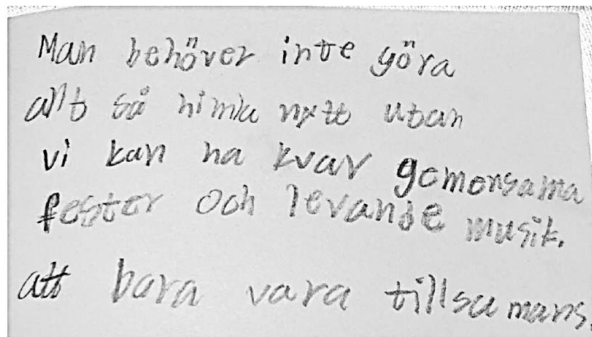 Man behöver inte göra
allt så himla nytt utan
vi kan ha kvar gemensama
fester och levande musik.
att bara vara tillsamans.